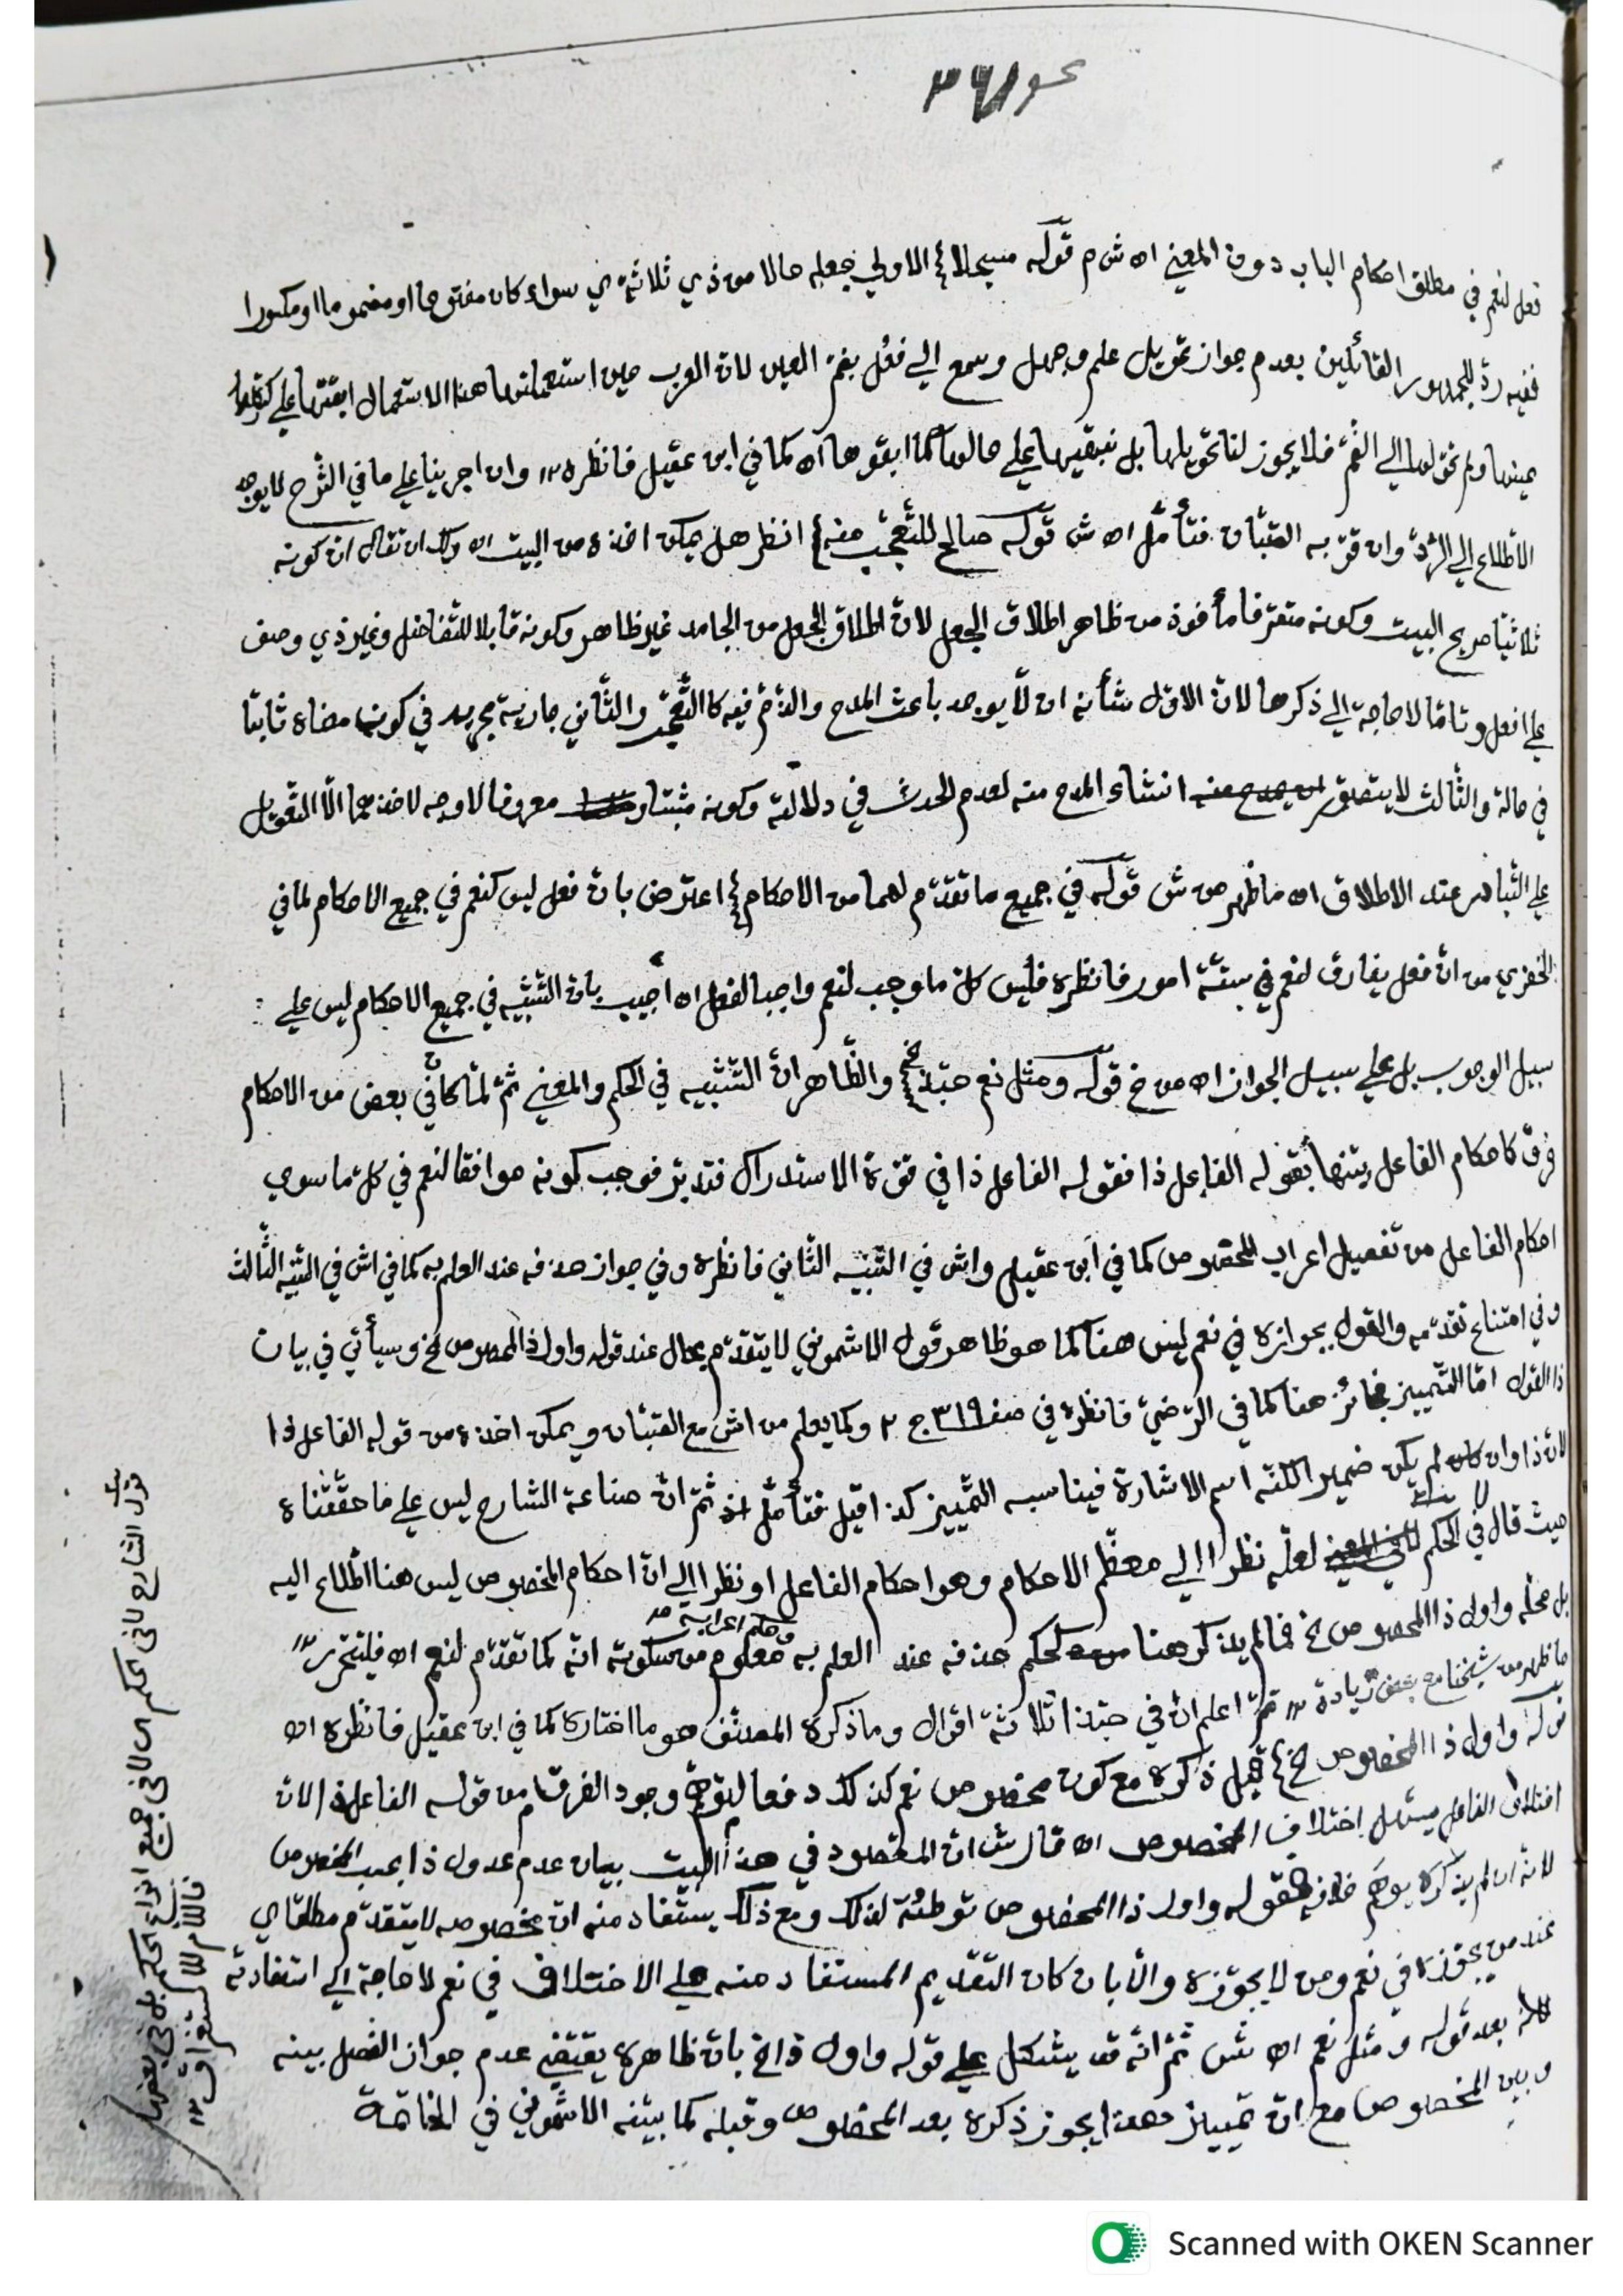 نحو ٣٦١
فعل لنعم في مطلق احكام الباب دون المعنى اه ش م قوله مسجلا الاولى جعله حالا من ذي ثلاثة ي سواء كان مفتوحا او مضموما او مكسورا
ففيه ردّ للجمهور القائلين بعدم جواز تحويل علم وجهل وسمع الي فعُل بضمّ العين لان العرب حين استعملتها هذا الاستعمال ابقتها على كسرة
عينها ولم تحوّلها الي الضّم فلا يجوز لنا تحويلها بل نبقيها علي حالها كما ابقوها اه كما في ابن عقيل فانظره ١٢ وان اجرينا علي ما في الشّرح لا يوجد
الاطّلاع الي الرّدّ وان قوّ به الصّبّان فتأمّل اه ش قوله صالح للتّعجّب منه انظر هل يمكن اخذه من البيت اه ولك ان تقال ان كونه
ثلاثيّا صريح البيت وكونه متصرّفا مأخوذ من ظاهر اطلاق الجعل لانّ اطلاق الجعل من الجامد غير ظاهر وكونه قابلا للتّفاضل وغير ذي وصف
علي افعل وتامّا لا حاجة الي ذكرها لانّ الاوّل شأنه ان لا يوجد باعث المدح والذّمّ فيه كالتّعجّب والثّاني جارية مجريه في كون معناه ثابتا
في حالة والثّالث لا يتصوّر انشاء المدح منه لعدم الحدث في دلالته وكونه مثبتا و معروفا لا وجه لاخذهما الّا التّعويل
علي التّبادر عند الاطلاق اه ما ظهر من ش قوله في جميع ما تقدّم لهما من الاحكام اعترض بانّ فعل ليس كنعم في جميع الاحكام لما في
الخضري من انّ فعل يفارق لنعم في ستّة امور فانظره فليس كلّ ما وجب لنعم واجبا لفعل اه أجيب بانّ التّشبيه في جميع الاحكام ليس علي :
سبيل الوجوب بل علي سبيل الجواز اه من خ قوله ومثل نعم حبّذا الخ والظّاهر انّ التّشبيه في الحكم والمعنى ثمّ لمّا كان في بعض من الاحكام
فرق كاحكام الفاعل بيّنها بقوله الفاعل ذا فقوله الفاعل ذا في قوّة الاستدراك فتدبّر فوجب كونه موافقا لنعم في كلّ ما سوي
احكام الفاعل من تفصيل اعراب المخصوص كما في ابن عقيل واش في التّنبيه الثّاني فانظره وفي جواز حذفه عند العلم به كما في اش في التّنبيه الثّالث
وفي امتناع تقدّمه والقول بجوازه في نعم ليس هنا كما هو ظاهر قول الاشموني لا يتقدّم بحال عند قوله واول ذا المخصوص الخ وسيأتي في بيان
ذا القول امّا التّمييز فجائز هنا كما في الرّضيّ فانظره في صف ٣١٩ ج ٢ وكما يعلم من اش مع الصّبّان ويمكن اخذه من قوله الفاعل ذا
لانّ ذا وان لم يكن ضميرا لكنّه اسم الاشارة فيناسبه التّمييز كذا قيل فتأمّل ثمّ انّ صناعة الشارح ليس علي ما حقّقناه
حيث قال في الحكم لعلّه نظرا الي معظم الاحكام وهو احكام الفاعل او نظرا الي انّ احكام المخصوص ليس هنا اطّلاع اليه
بل محلّه واول ذا المخصوص الخ فما لم يذكر هنا كحكم حذفه عند العلم به وحكم اعرابه معلوم من سكوته انّه كما تقدّم لنعم اه فليتحرّر ١٢
ما ظهر من شيخنا مع بعض زيادة ١٢ ثمّ اعلم انّ في حبّذا ثلاثة اقوال وما ذكره المصنّف هو ما اختاره كما في ابن عقيل فانظره اه
قوله واول ذا المخصوص الخ قيل ذكره مع كون مخصوص نعم كذلك دفعا لتوهّم وجود الفرق من قوله الفاعل ذا لانّ
اختلاف الفاعل اختلاف المخصوص اه قال ش انّ المقصود في هذا البيت بيان عدم عدول ذا بحسب المخصوص
لانّه ان لم يذكره يوهم خلافه فقوله واول ذا المخصوص توطئة لذلك ومع ذلك يستفاد منه انّ مخصوصه لا يتقدّم مطلقا ي
عند من يجوّزه في نعم ومن لا يجوّزه والّا بان كان التّقديم المستفاد منه علي الاختلاف في نعم لا حاجة الي استفادته
لانّه بعد قوله ومثل نعم اه ش ثمّ انّه قد يشكل علي قوله واول ذا الخ بانّ ظاهره يقتضي عدم جواز الفصل بينه
وبين المخصوص مع انّ تمييز حبّذا يجوز ذكره بعد المخصوص وقبله كما بيّنه الاشموني في الخاتمة
قول الشارح لا في الحكم اي لا في جميع انواع الحكم بل في بعضها
فاللام للاستغراق ١٢
Scanned with OKEN Scanner